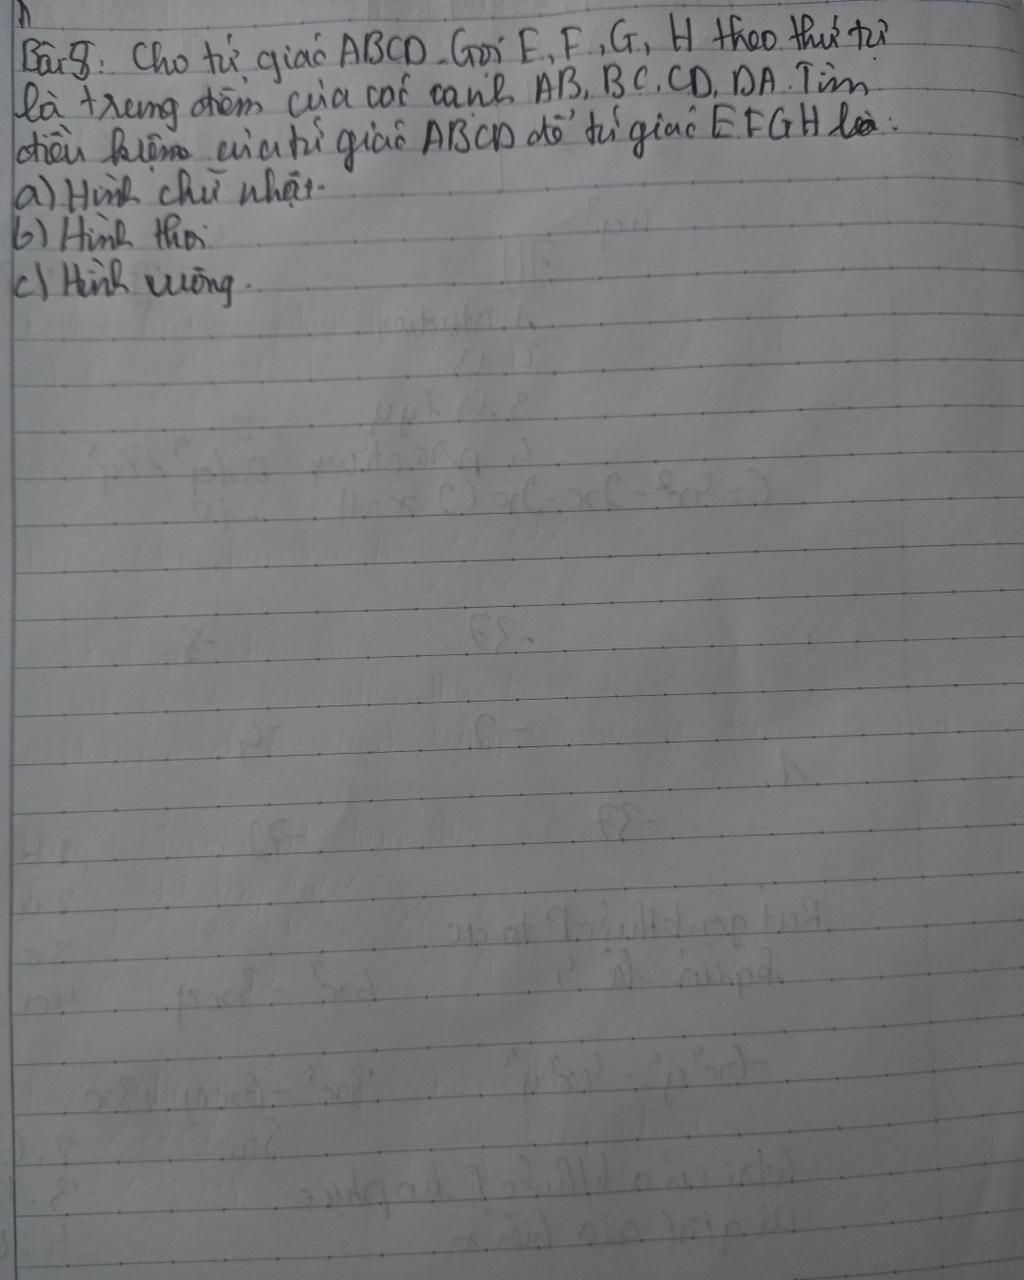 Bài 8: Cho tứ giác ABCD. Gọi E, F, G, H theo thứ tự
là trung điểm của các cạnh AB, BC, CD, DA. Tìm
điều kiện của tứ giác ABCD để tứ giác EFGH là:
a) Hình chữ nhật.
b) Hình thoi
c) Hình vuông.